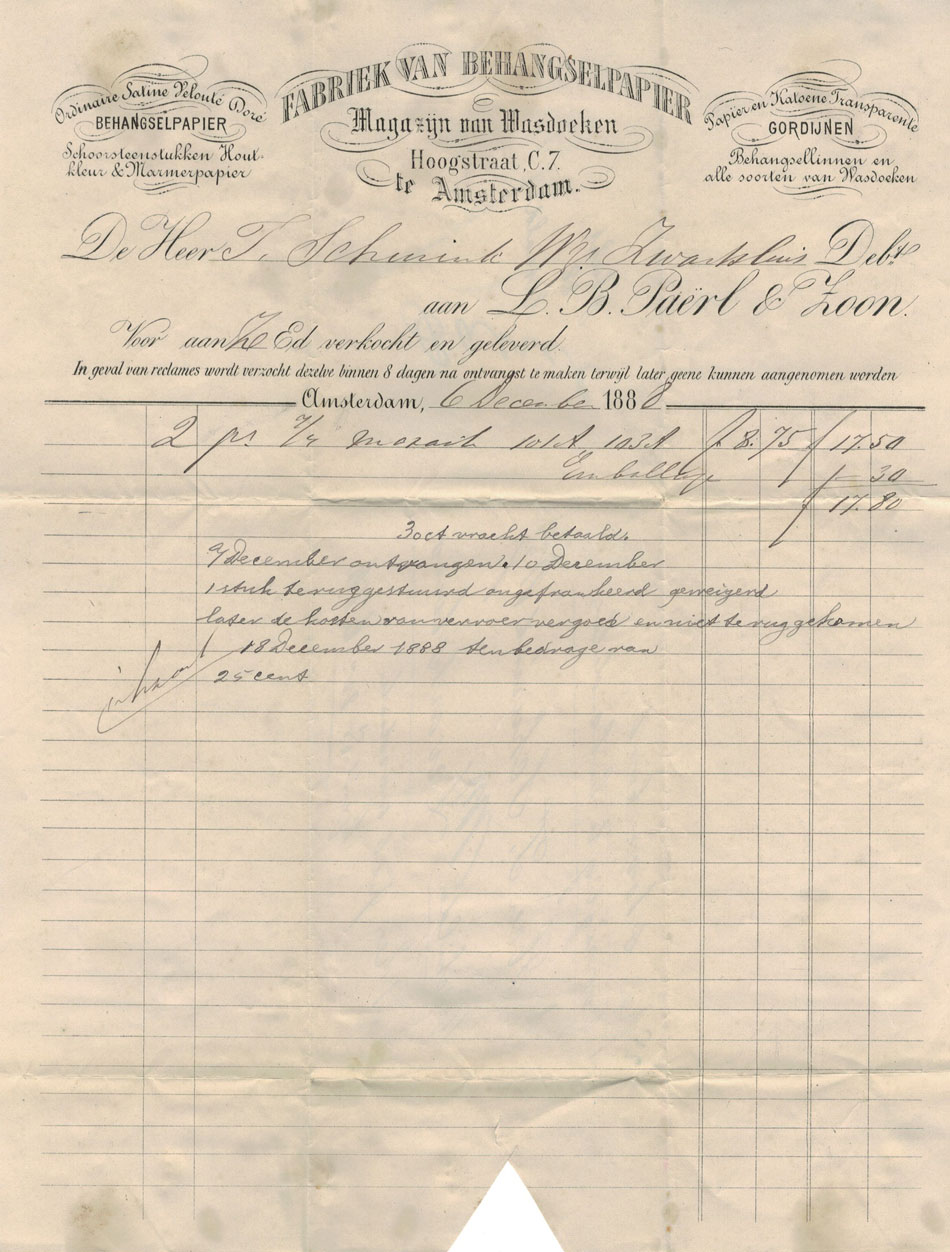 FABRIEK VAN BEHANGSELPAPIER
Magazijn van Wasdoeken
Hoogstraat, C. 7.
te Amsterdam.
Ordinaire Satine Velouté Doré
BEHANGSELPAPIER
Schoorsteenstukken Hout-
kleur & Marmerpapier
Papier en Katoene Transparente
GORDIJNEN
Behangsellinnen en
alle soorten van Wasdoeken
De Heer T. Schurink Zwartsluis Debt.
aan L. B. Päerl & Zoon.
Voor aan Z Ed verkocht en geleverd.
In geval van reclames wordt verzocht dezelve binnen 8 dagen na ontvangst te maken terwijl later geene kunnen aangenomen worden
Amsterdam, 6 December 1888
2 ps 7/4 101A 103A f 8.75 f 17.50
Emballage f - 30
f 17.80
30ct vracht betaald.
9 December ontvangen. 10 December
1 stuk teruggestuurd ongefrankeerd geweigerd
later de kosten van vervoer vergoed en niet teruggekomen
18 December 1888 ten bedrage van
25 cent